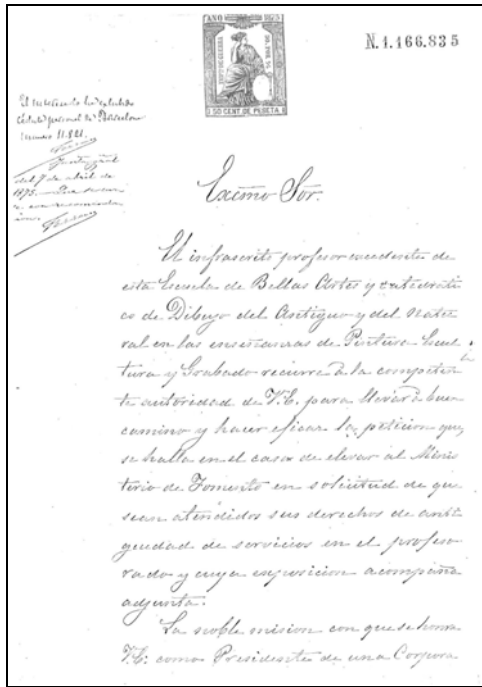 AÑO 1875
N.1.166.835
IMPTO DE GUERRA
50 CENT. DE PESETA.
El interesado ha exhibido
cédula personal de Barcelona
número 11.821.
Junta gral
del 7 de abril de
1875.
Excmo Sor.
El infrascrito profesor excedente de
esta Escuela de Bellas Artes y catedráti
co de Dibujo del Antiguo y del Natu
ral en las enseñanzas de Pintura Escul
tura y Grabado recurre à la competen
te autoridad de V.E. para llevar à buen
camino y hacer eficaz la peticion que
se halla en el caso de elevar al Minis
terio de Fomento en solicitud de que
sean atendidos sus derechos de anti
guedad de servicios en el profeso
rado y cuya exposicion acompaña
adjunta.
La noble mision con que se honra
V.E. como Presidente de una Corpora